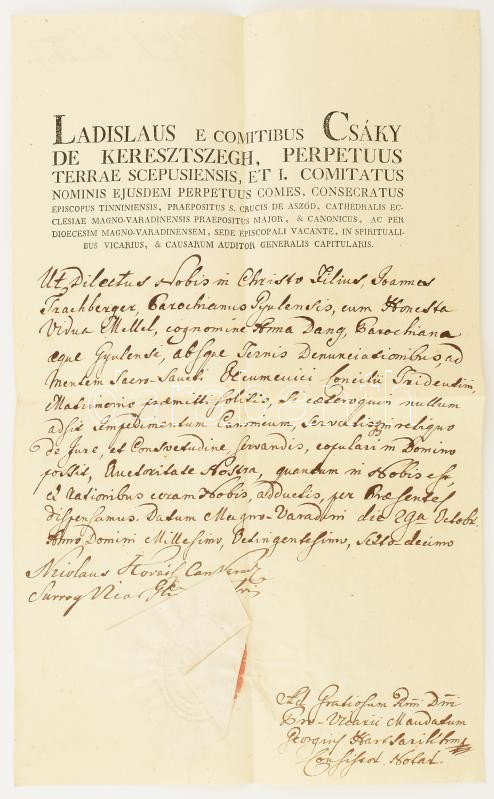 LADISLAUS E COMITIBUS CSÁKY
DE KERESZTSZEGH, PERPETUUS
TERRAE SCEPUSIENSIS, ET I. COMITATUS
NOMINIS EJUSDEM PERPETUUS COMES, CONSECRATUS
EPISCOPUS TINNINIENSIS, PRAEPOSITUS S. CRUCIS DE ASZÓD, CATHEDRALIS EC-
CLESIAE MAGNO-VARADINENSIS PRAEPOSITUS MAJOR, & CANONICUS, AC PER
DIOECESIM MAGNO-VARADINENSEM, SEDE EPISCOPALI VACANTE, IN SPIRITUALI-
BUS VICARIUS, & CAUSARUM AUDITOR GENERALIS CAPITULARIS.
Ut Dilectus Nobis in Christo Filius, Joannes
Trachberger, Parochianus Gyulensis, cum Honesta
Vidua Mellel, cognomine Anna Dang, Parochiana
aeque Gyulensi, absque Ternis Denunciationibus, ad
mentem Sacro-Sancti Oecumenici Concilii Tridentini,
Matrimonio praemitti solitis, si caeteroquin nullum
adsit Impedimentum Canonicum, servatis in reliquo
de Jure, et Consvetudine servandis, copulari in Domino
possit, Auctoritate Nostra, quantum in Nobis est,
ex rationibus coram Nobis, adductis, per Praesentes
dispensamus. Datum Magno-Varadini die 29a Octobr.
Anno Domini Millesimo, Octingentesimo, Sexto-decimo
Nicolaus Kováts
Surrog
Ad Gratiosum Rmi Dni
Pro-Vicarii Mandatum
Georgius
Consist. Notar.